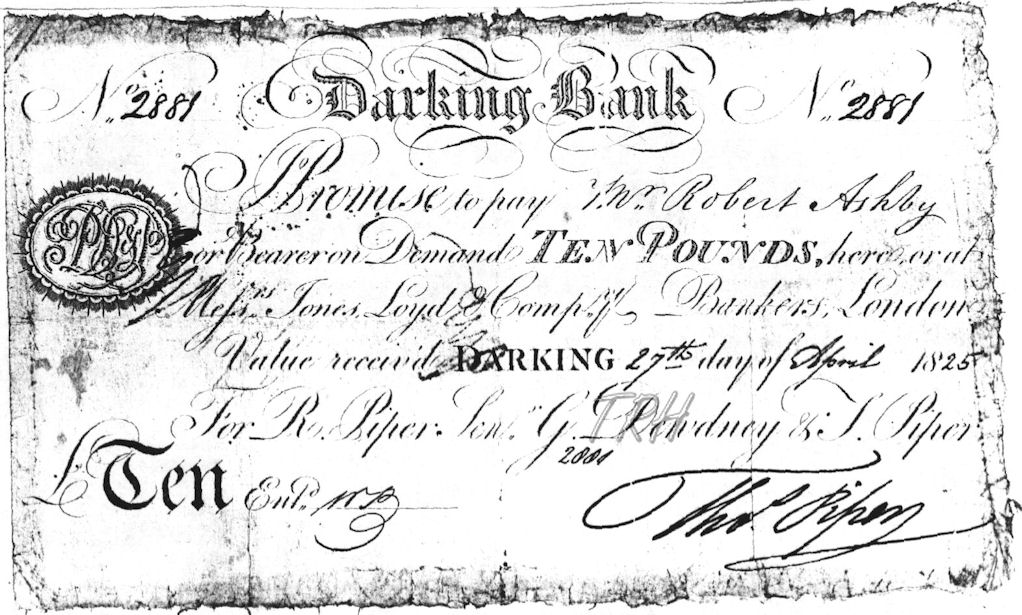 No. 2881 Darking Bank No. 2881
I Promise to pay Mr. Robert Ashby
or Bearer on Demand TEN POUNDS, here or at
Messrs. Jones, Loyd & Compy. Bankers, London
Value receiv'd DARKING 27th day of April 1825
For R. Piper Senr. G. Dewdney & T. Piper
TRH
2881
£ Ten Entd.
Thos. Piper